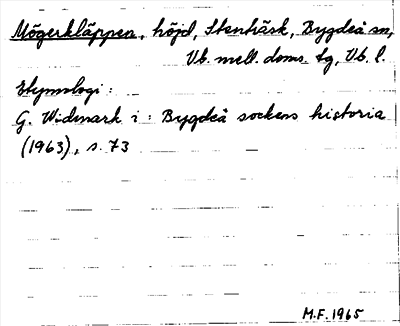 Mögerkläppen, höjd, Stenträsk, Bygdeå sn,
Vb. mell. doms. tg, Vb. l.
Etymologi:
G. Widmark i: Bygdeå sockens historia
(1963), s. 73
M.F. 1965